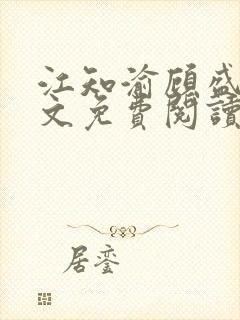 江知渝顾盛
文免費閱讀
居銮